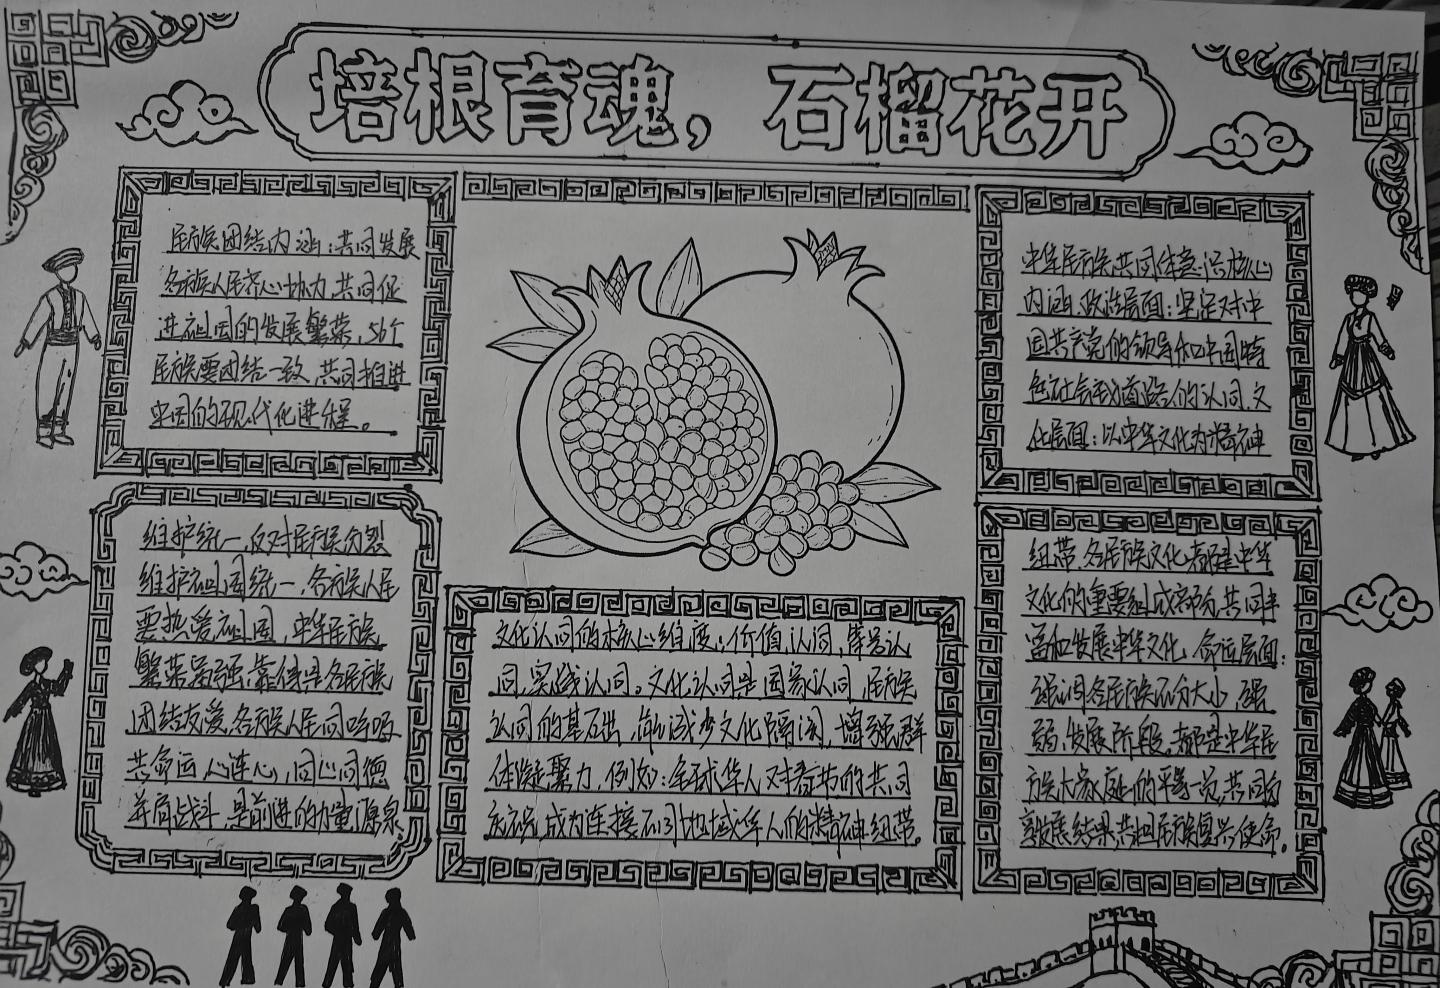 培根育魂，石榴花开
民族团结内涵：共同发展
各族人民齐心协力，共同促
进祖国的发展繁荣，56个
民族要团结一致，共同推进
中国的现代化进程。
维护统一，反对民族分裂
维护祖国统一，各族人民
要热爱祖国，中华民族
繁荣富强，靠得是各民族
团结友爱，各族人民同呼吸
共命运，心连心，同心同德
并肩战斗，是前进的力量源泉
文化认同的核心维度：价值认同，
同，实践认同。文化认同是国家认同，民族
认同的基石出，能减少文化隔阂，增强群
体凝聚力，例如：全球华人对春节的共同
庆祝，成为连接不同地域华人的精神纽带。
中华民族共同体意识核心
内涵，政治层面：坚定对中
国共产党的领导和中国特
色社会主义道路的认同，文
化层面：以中华文化为精神
纽带，各民族文化都是中华
文化的重要组成部分，共同丰
富和发展中华文化，命运层面：
强调各民族不分大小，强
弱，发展阶段，都是中华民
族大家庭的平等一员，共同分
享发展结果，共担民族复兴使命。